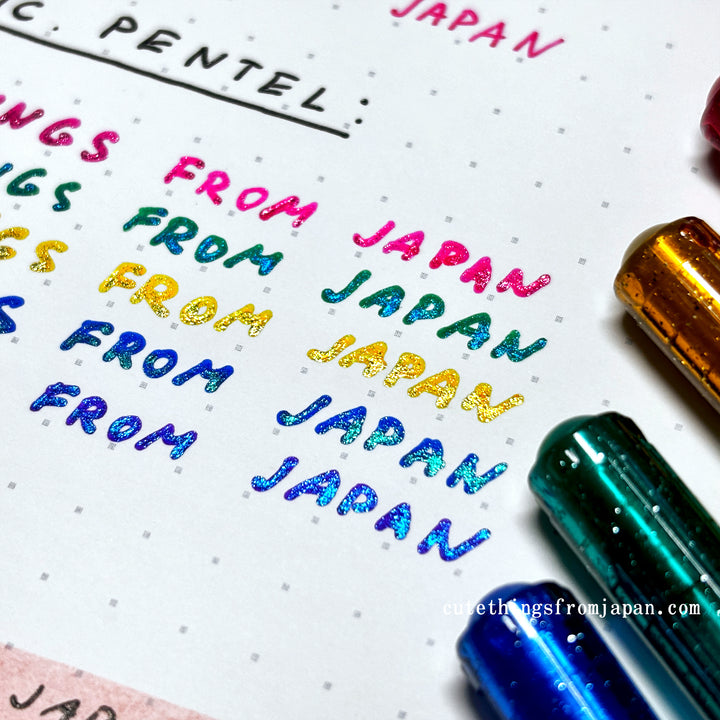 JAPAN
C. PENTEL:
NGS FROM JAPAN
NGS FROM JAPAN
GS FROM JAPAN
S FROM JAPAN
FROM JAPAN
cutethingsfromjapan.com
JAP